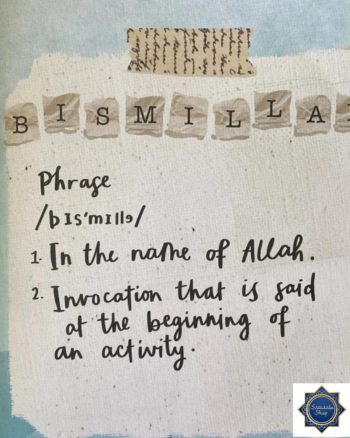 BISMILLA
Phrase
/bɪs'mɪllə/
1. In the name of Allah.
2. Invocation that is said
at the beginning of
an activity.